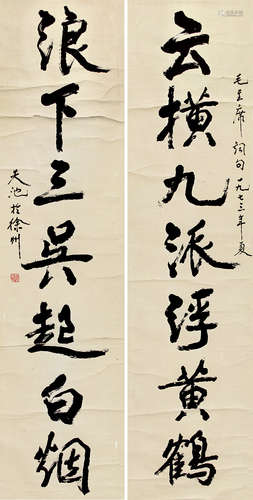 毛主席词句一九七三年夏
云横九派浮黄鹤
浪下三吴起白烟
天池于徐州